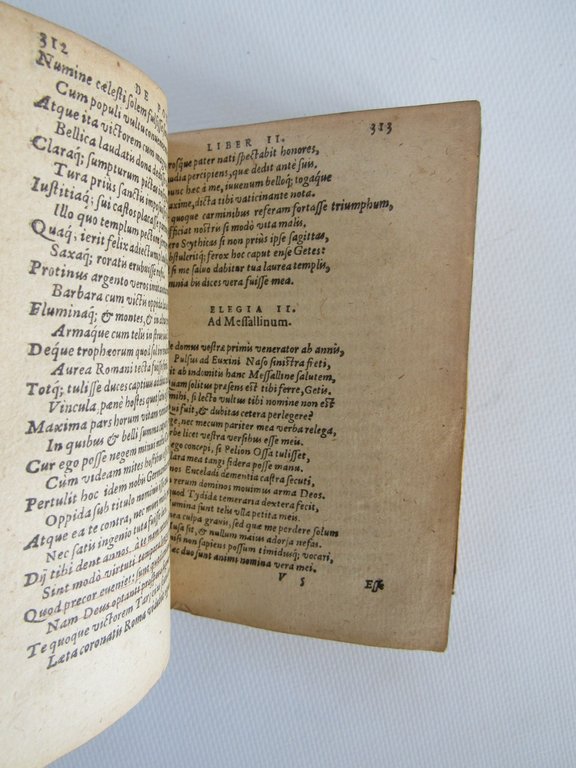 312
DE PO
Numine cælesti solem fulsisse
Cum populi vultu conveni
Atque ita victorem cum
Bellica laudatis dona dedisse
Claraq; sumpturum pictas
Tura priùs sanctis impo
Iustitiaq; sui castos placasse
Illo quo templum pectore
Quaq; ierit felix adiectum
Saxaq; roratis erubuisse
Protinus argento veros imita
Barbara cum victis oppida
Fluminaq; & montes, & in
Armaque cum telis in strue
Deque trophæorum quod sol
Aurea Romani tecta fuisse
Totq; tulisse duces captivis addita
Vincula pænè hostes quot
Maxima pars horum vitam veniam
In quibus & belli summa cap
Cur ego posse negem minui mihi
Cum videam mites hostibus
Pertulit hoc idem nobis Germa
Oppida sub titulo nominis
Atque ea te contra, nec muro
Nec satis ingenio tuta fuisse
Dij tibi dent annos, à te nam
Sint modò virtuti tempora
Quod precor eveniet: sunt quid
Nam Deus optanti prospera
Te quoque victorem Tarpeias
Læta coronatis Roma videbit
LIBER II. 313
rosque pater nati spectabit honores,
udia percipiens, quæ dedit antè suis.
unc hæc à me, iuvenum belloq; togaque
axime, dicta tibi vaticinante nota.
quoque carminibus referam fortasse triumphum,
fficiat nostris si modò vita malis.
ero Scythicas si non priùs ipse sagittas,
bstuleritq; ferox hoc caput ense Getes:
d si me salvo dabitur tua laurea templis,
mnia bis dices vera fuisse mea.
ELEGIA II.
Ad Messallinum.
le domus vestra primis venerator ab annis,
Pulsus ad Euxini Naso sinistra freti,
it ab indomitis hanc Messalline salutem,
uam solitus præsens est tibi ferre, Getis.
mihi, si lecto vultus tibi nomine non est
qui fuit, & dubitas cetera perlegere?
ge, nec mecum pariter mea verba relega,
rbe licet vestra versibus esse meis.
ego concepi, si Pelion Ossa tulisset,
ara mea tangi sidera posse manu.
nos Enceladi dementia castra secuti,
rerum dominos movimus arma Deos.
quod Tydidæ temeraria dextera fecit,
umina sunt telis ulla petita meis.
ea culpa gravis, sed quæ me perdere solum
usa sit, & nullum maius adorsa nefas.
isi non sapiens possum timidusq; vocari,
ec duo sunt animi nomina vera mei.
V 5 Esse